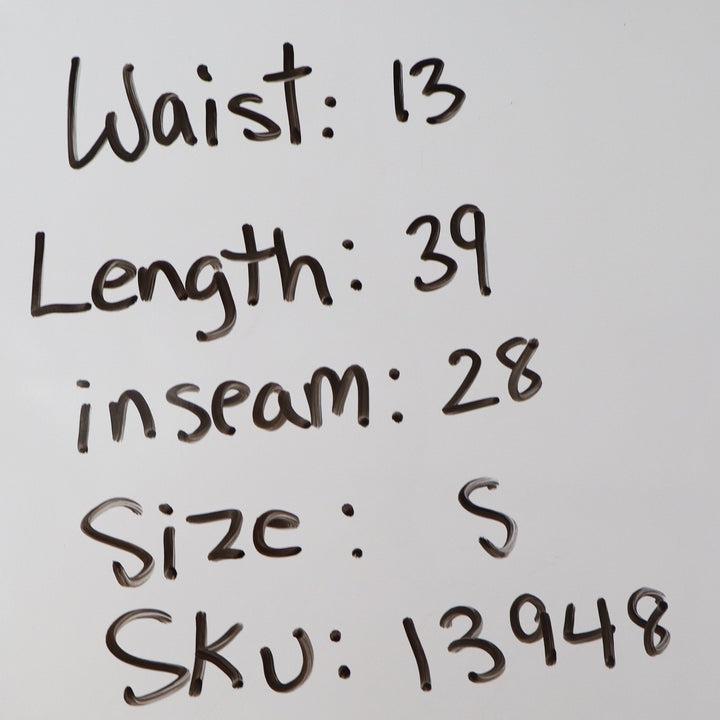 Waist: 13
Length: 39
inseam: 28
Size: S
Sku: 13948